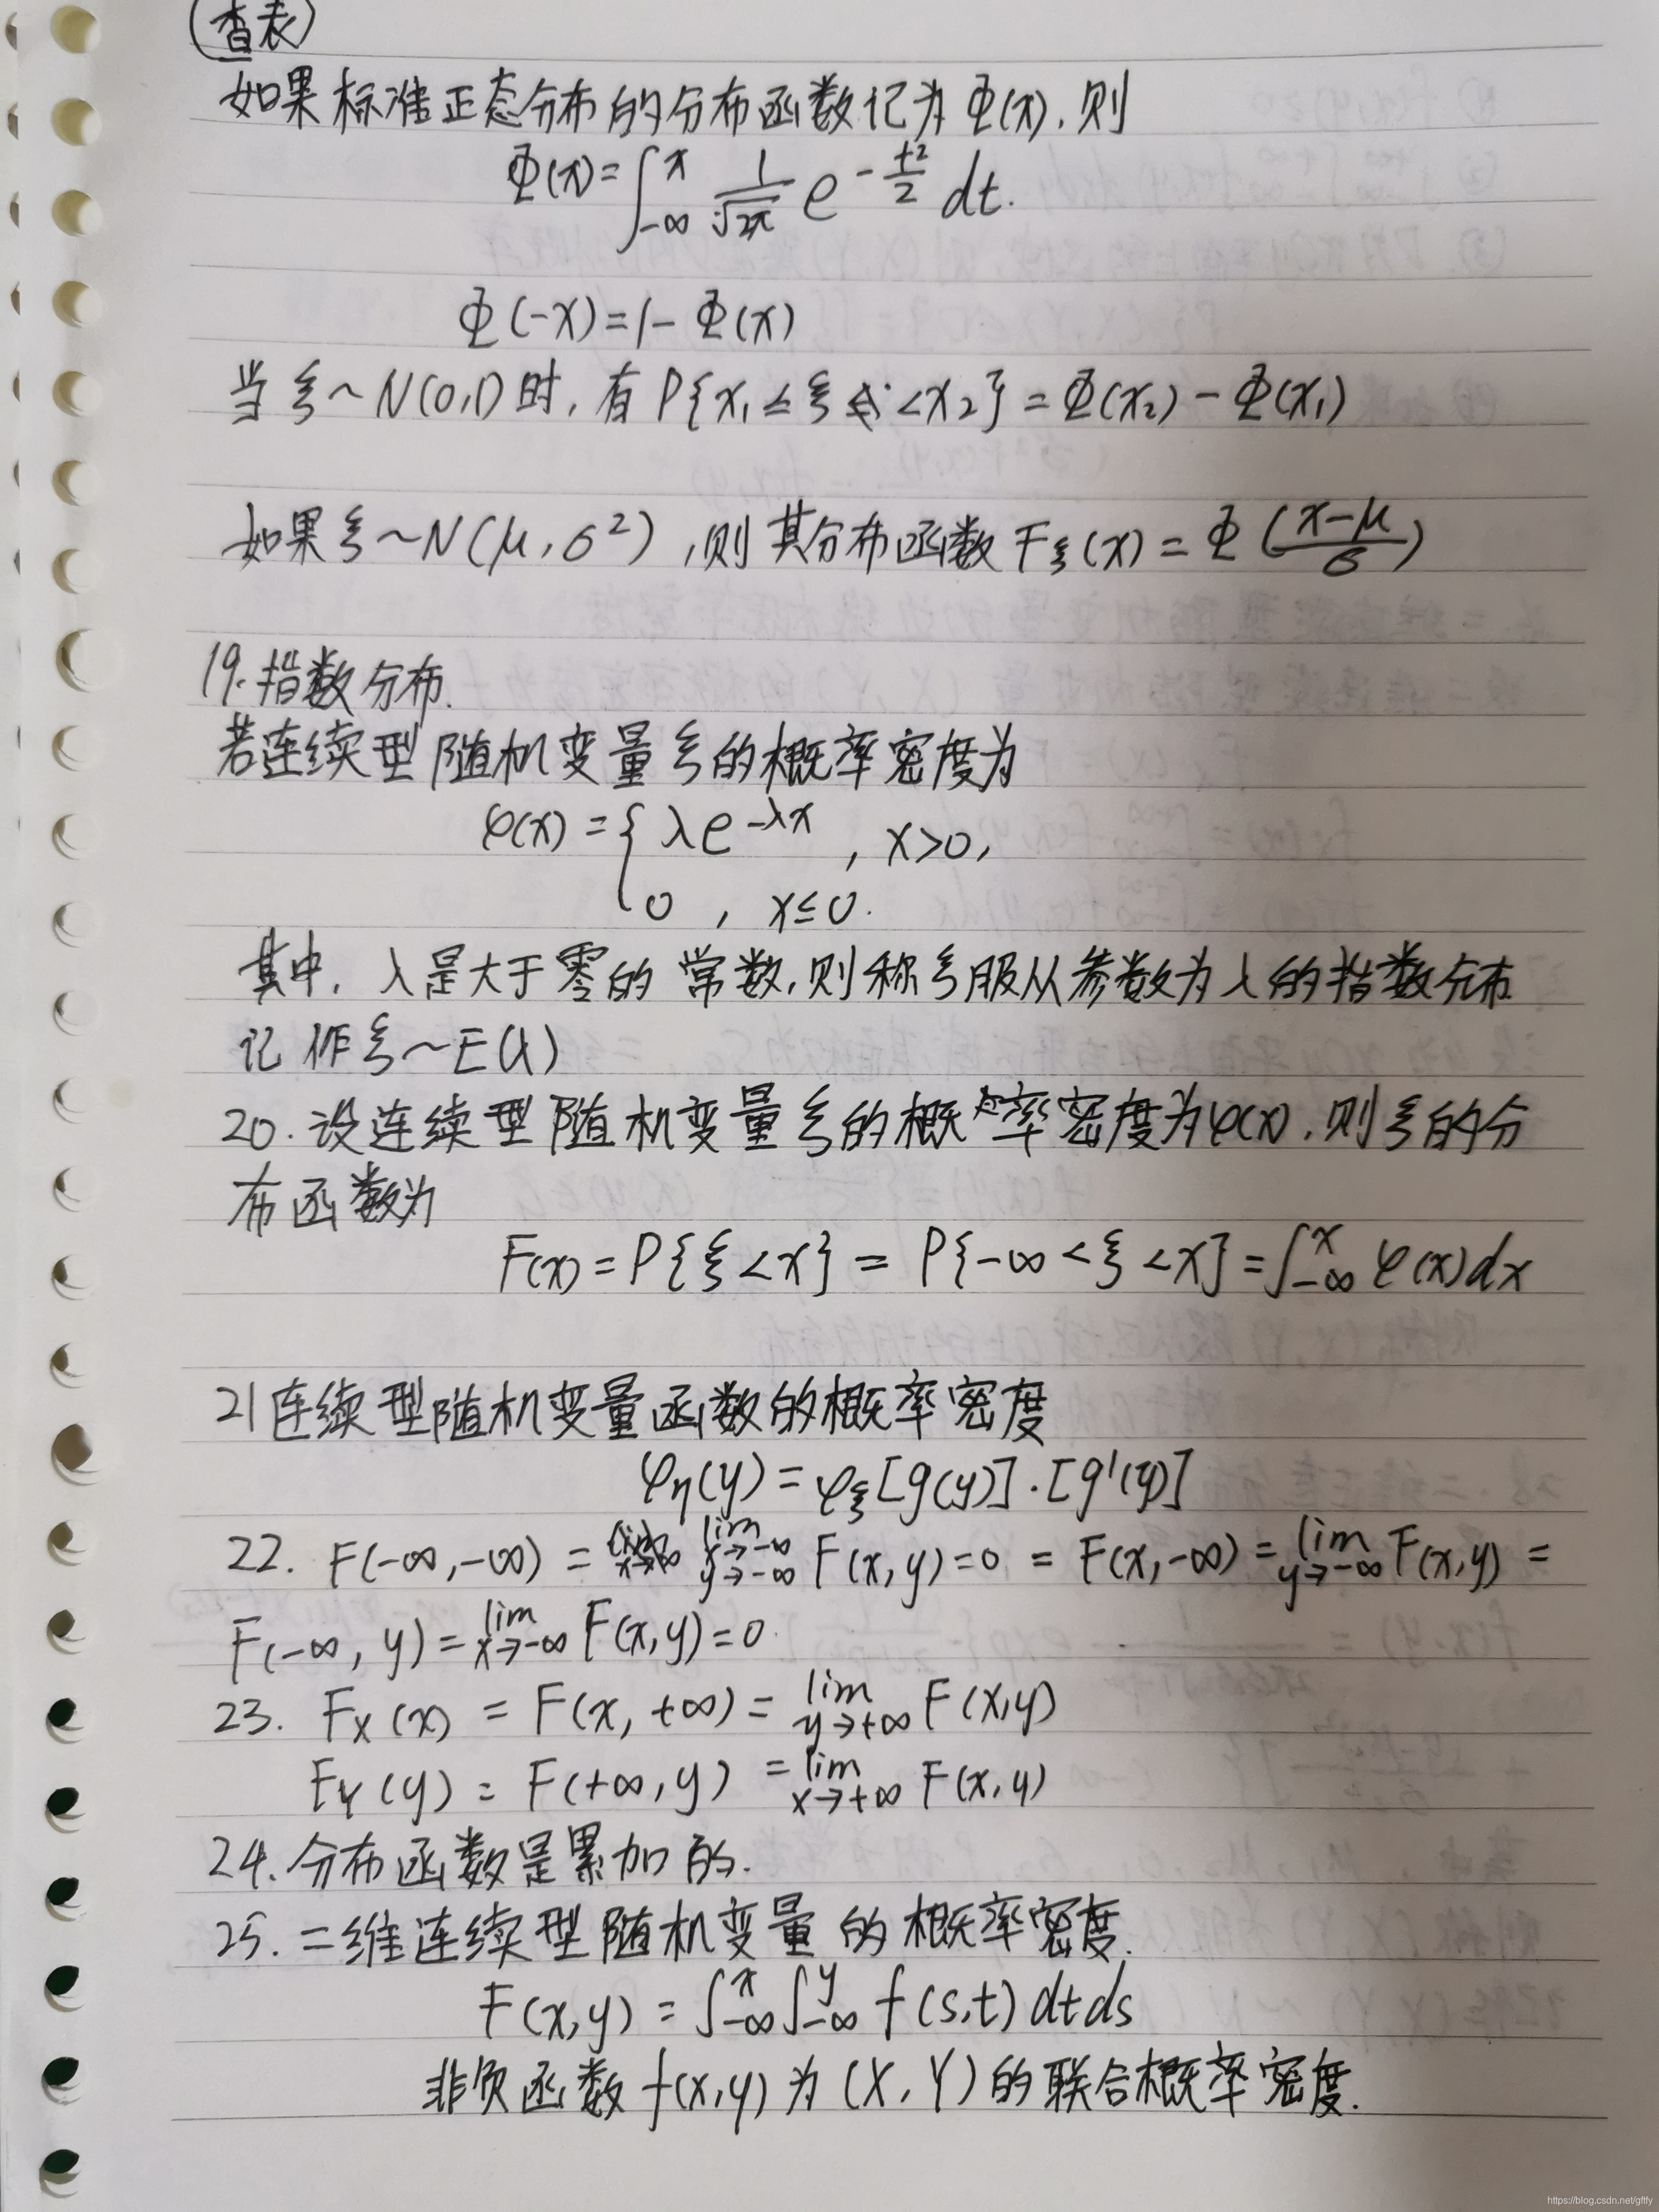 (查表)
如果标准正态分布的分布函数记为Φ(x),则
Φ(x)=∫_{-∞}^{x} 1/√(2π) e^{-t²/2} dt.
Φ(-x)=1-Φ(x)
当ξ~N(0,1)时,有P{x₁≤ξ<x₂}=Φ(x₂)-Φ(x₁)
如果ξ~N(μ,σ²),则其分布函数F_ξ(x)=Φ((x-μ)/σ)
19.指数分布.
若连续型随机变量ξ的概率密度为
φ(x)={λe^{-λx}, x>0,
0, x≤0.
其中,λ是大于零的常数,则称ξ服从参数为λ的指数分布
记作ξ~E(λ)
20.设连续型随机变量ξ的概率密度为φ(x),则ξ的分
布函数为
F(x)=P{ξ<x}=P{-∞<ξ<x}=∫_{-∞}^{x} φ(x)dx
21连续型随机变量函数的概率密度
φ_η(y)=φ_ξ[g(y)]·[g'(y)]
22. F(-∞,-∞)=lim_{x→-∞ y→-∞} F(x,y)=0=F(x,-∞)=lim_{y→-∞} F(x,y)=
F(-∞,y)=lim_{x→-∞} F(x,y)=0.
23. F_X(x)=F(x,+∞)=lim_{y→+∞} F(x,y)
F_Y(y)=F(+∞,y)=lim_{x→+∞} F(x,y)
24.分布函数是累加的.
25.二维连续型随机变量的概率密度.
F(x,y)=∫_{-∞}^{x}∫_{-∞}^{y} f(s,t)dtds
非负函数f(x,y)为(X,Y)的联合概率密度.
https://blog.csdn.net/gftfy